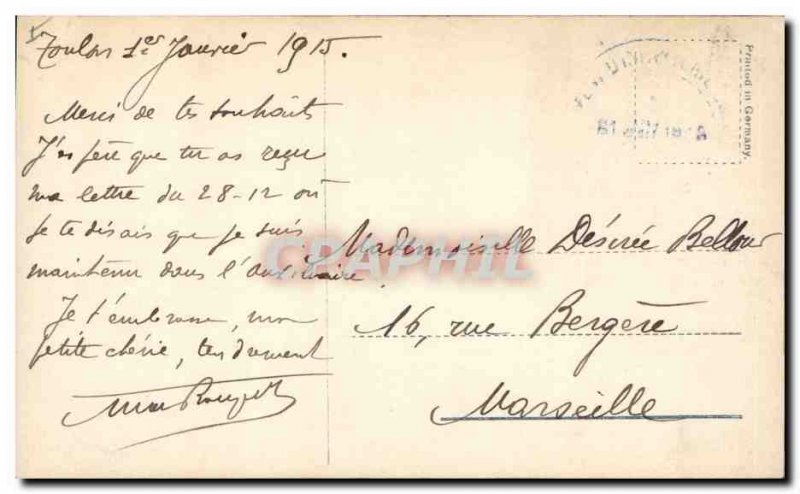 Toulon 1er Janvier 1915.
Merci de tes souhaits
J'espère que tu as reçu
ma lettre du 28-12 où
je te disais que je suis
maintenu dans l'auxiliaire.
Je t'embrasse, ma
petite chérie, tendrement
Mademoiselle Désirée
16, rue Bergère
Marseille
Printed in Germany.
CPAPHIL